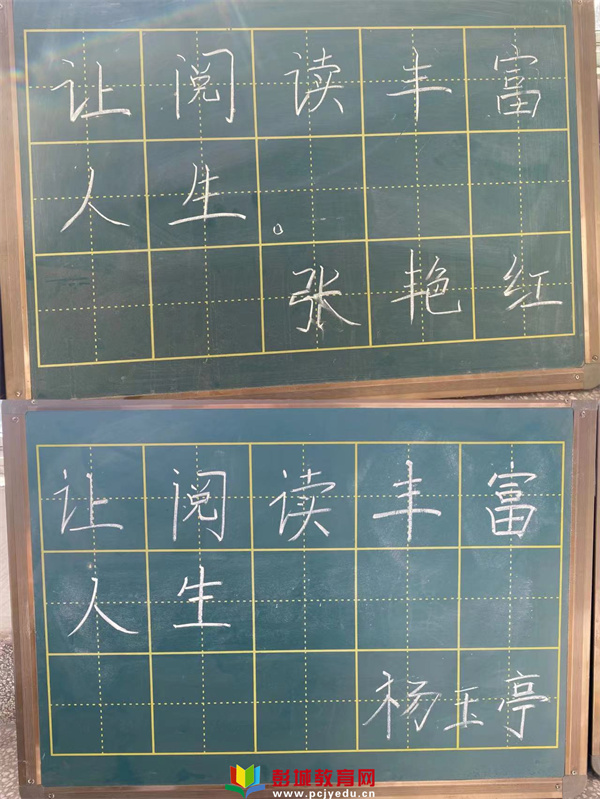 让阅读丰富
人生。
张艳红
让阅读丰富
人生
杨玉亭
彭城教育网
www.pcjyedu.cn